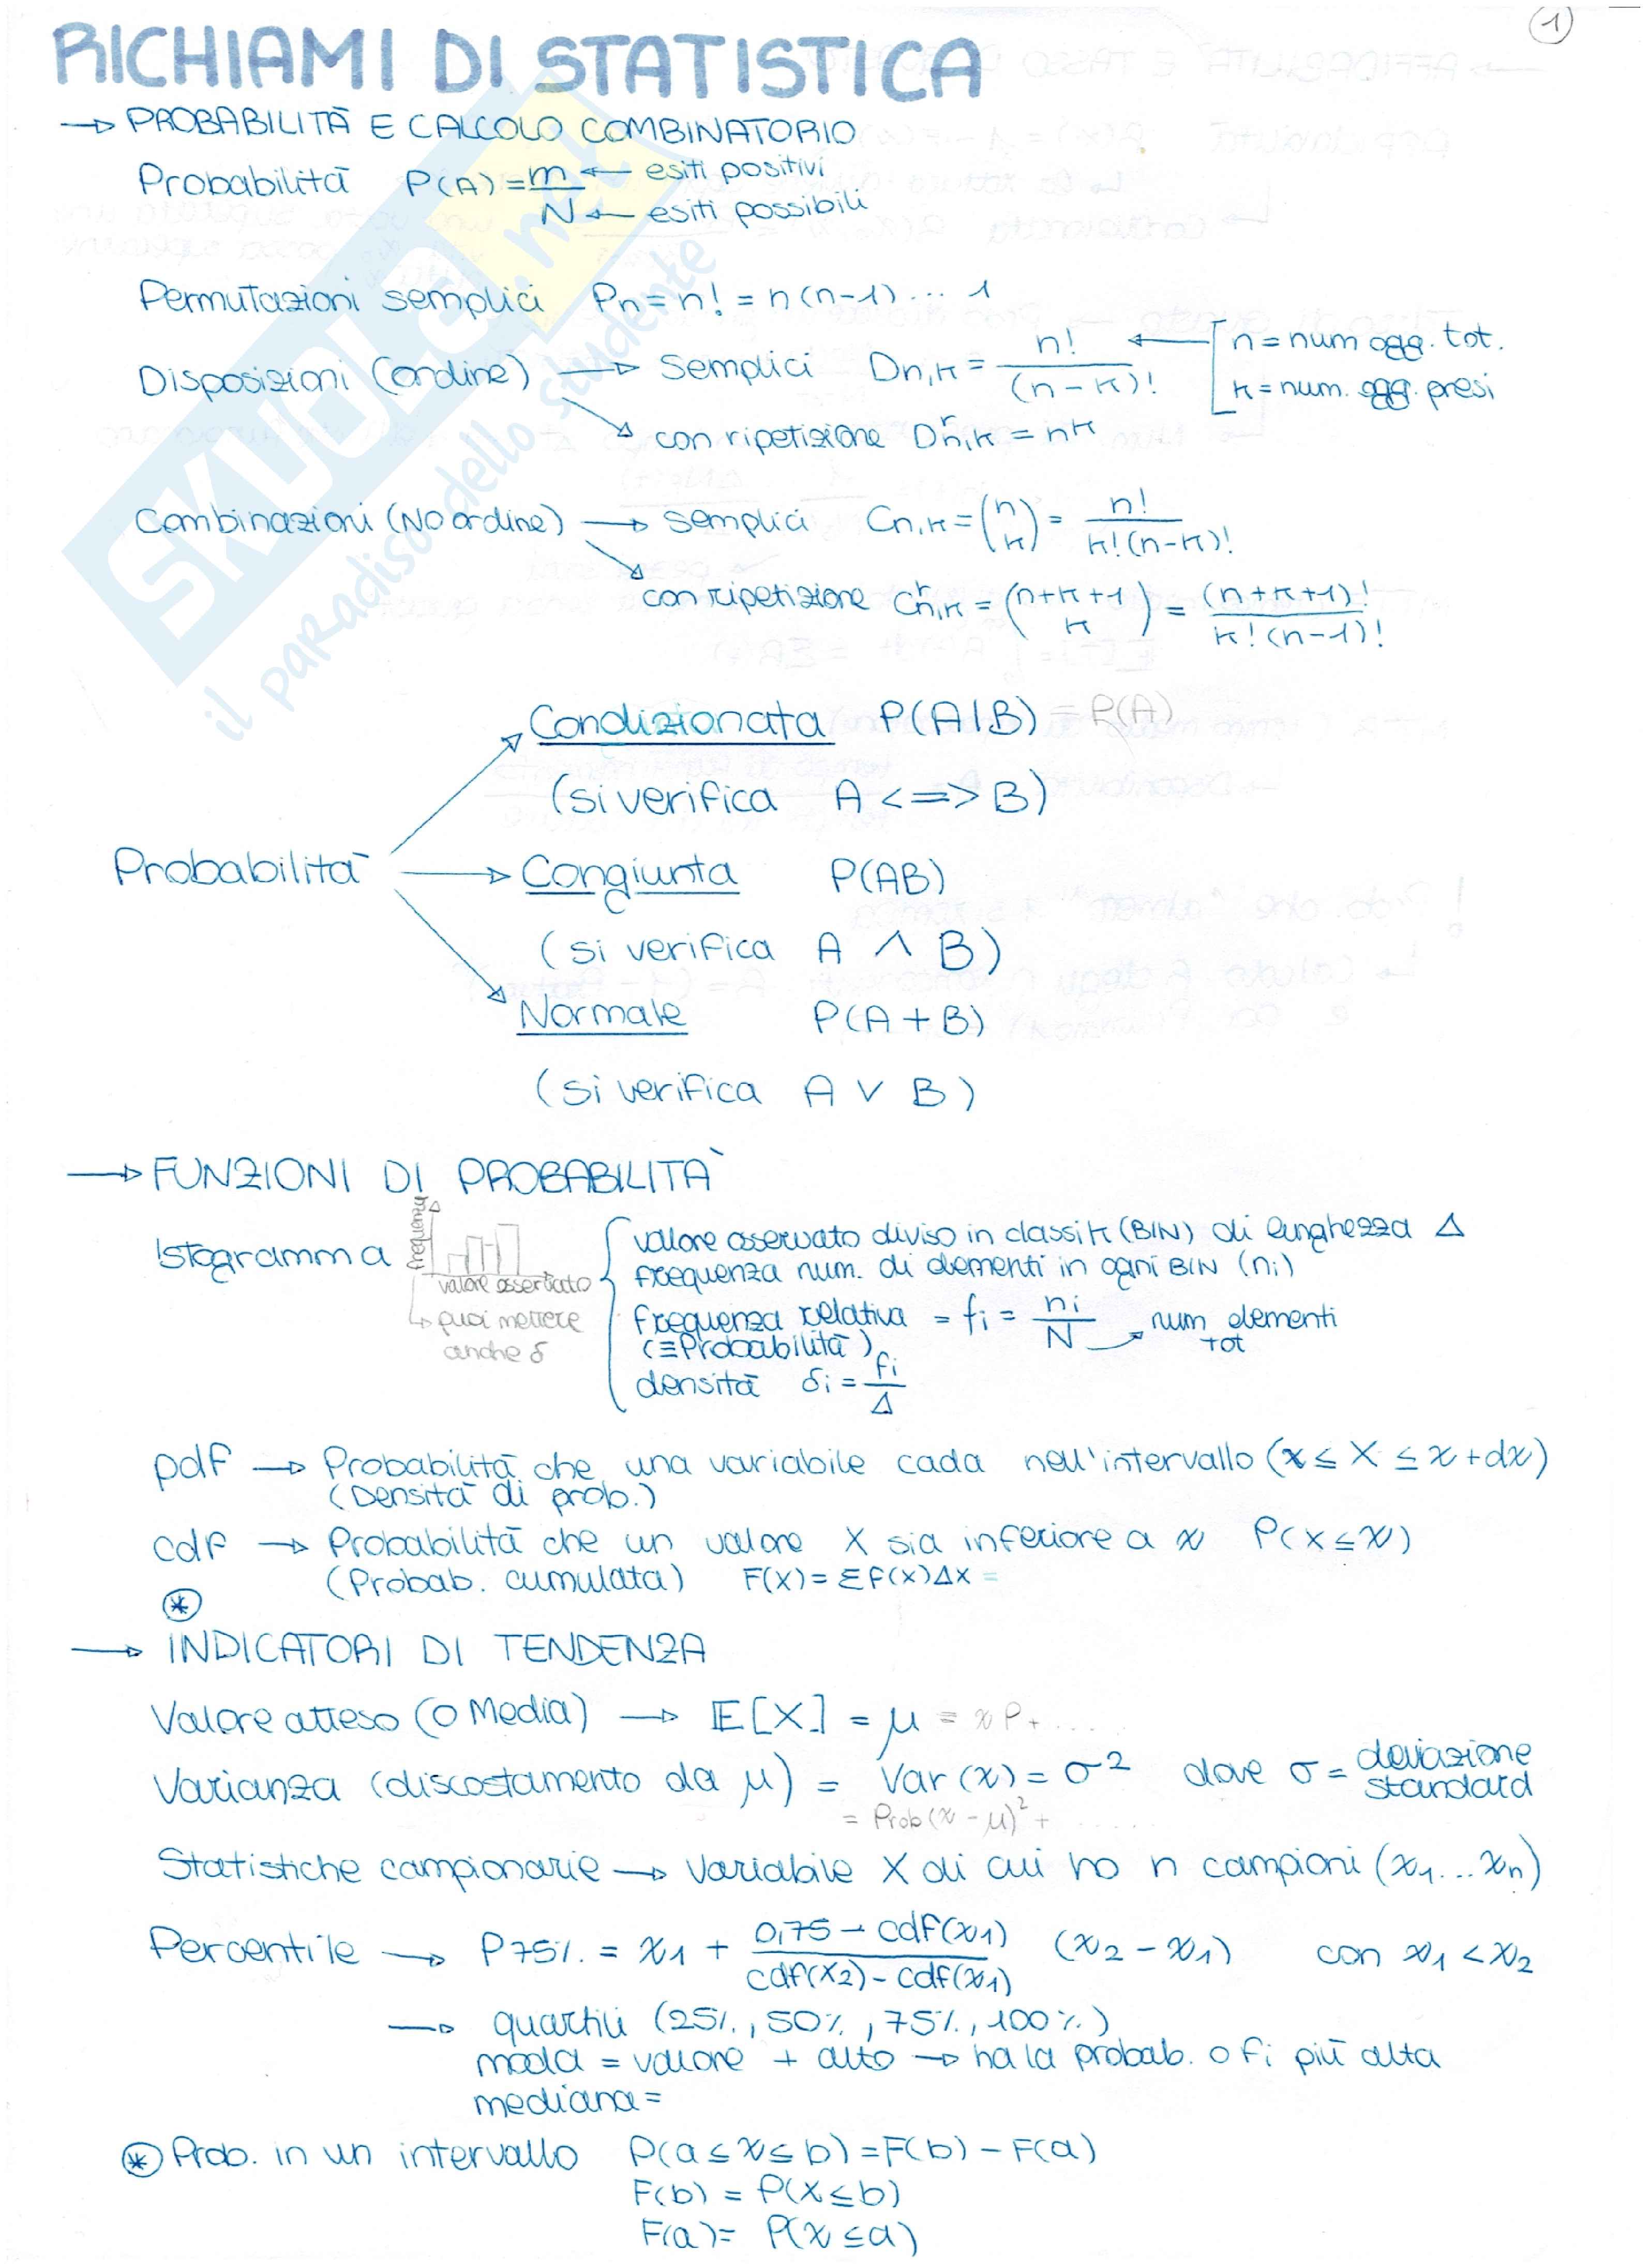 1
RICHIAMI DI STATISTICA
→ PROBABILITÀ E CALCOLO COMBINATORIO
Probabilità P(A) = m/N ← esiti positivi
← esiti possibili
Permutazioni semplici Pn = n! = n(n-1)... 1
Disposizioni (ordine) → semplici Dn,k = n!/(n-k)! ← [n = num ogg. tot.
k = num. ogg. presi
con ripetizione Dʳn,k = nᵏ
Combinazioni (NO ordine) → semplici Cn,k = (n k) = n!/k!(n-k)!
con ripetizione Cʳn,k = (n+k+1 k) = (n+k+1)!/k!(n-1)!
Condizionata P(A|B) = P(A)
(si verifica A <=> B)
Probabilità → Congiunta P(AB)
(si verifica A ∧ B)
Normale P(A+B)
(si verifica A ∨ B)
→ FUNZIONI DI PROBABILITÀ
Istogramma
frequenza
valore osservato
↳ puoi mettere
anche δ
valore osservato diviso in classi k (BIN) di lunghezza Δ
frequenza num. di elementi in ogni BIN (ni)
frequenza relativa = fi = ni/N → num elementi tot
(≡Probabilità)
densità δi = fi/Δ
pdf → Probabilità che una variabile cada nell'intervallo (x ≤ X ≤ x+dx)
(Densità di prob.)
cdf → Probabilità che un valore X sia inferiore a x P(X≤x)
(Probab. cumulata) F(X) = Σf(x)Δx =
*
→ INDICATORI DI TENDENZA
Valore atteso (o Media) → E[X] = μ = xP+ .....
Varianza (discostamento da μ) = Var(x) = σ² dove σ = deviazione standard
= Prob(x-μ)² + .....
Statistiche campionarie → variabile X di cui ho n campioni (x1...xn)
Percentile → P75% = x1 + 0,75 - cdf(x1)/cdf(x2) - cdf(x1) (x2-x1) con x1<x2
→ quartili (25%, 50%, 75%, 100%)
moda = valore + alto → ha la probab. o fi più alta
mediana =
* Prob. in un intervallo P(a≤x≤b) = F(b) - F(a)
F(b) = P(X≤b)
F(a) = P(x≤a)
SKUOLA.net
il paradiso dello studente